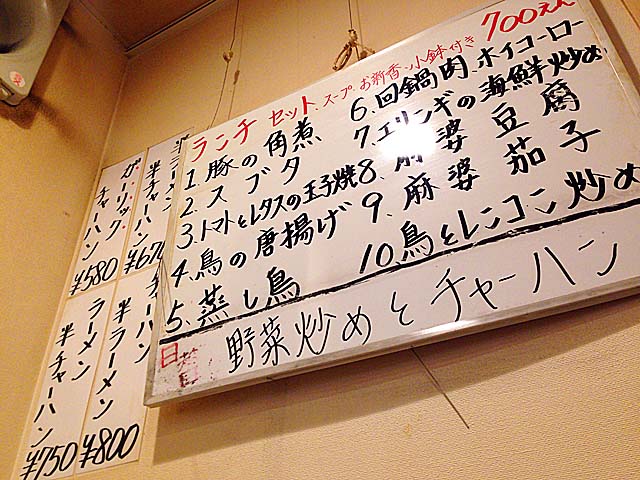 ランチ セット、スープ、お新香、小鉢付き 700えん
1. 豚の角煮
2. スブタ
3. トマトとレタスの玉子焼
4. 鳥の唐揚げ
5. 蒸し鳥
6. 回鍋肉、ホイコーロー
7. エリンギの海鮮炒め
8. 麻婆豆腐
9. 麻婆茄子
10. 鳥とレンコン炒め
日
野菜炒めとチャーハン
半チャーハン
¥670
ガーリック
チャーハン
¥580
チャーハン
半ラーメン
¥800
ラーメン
半チャーハン
¥750